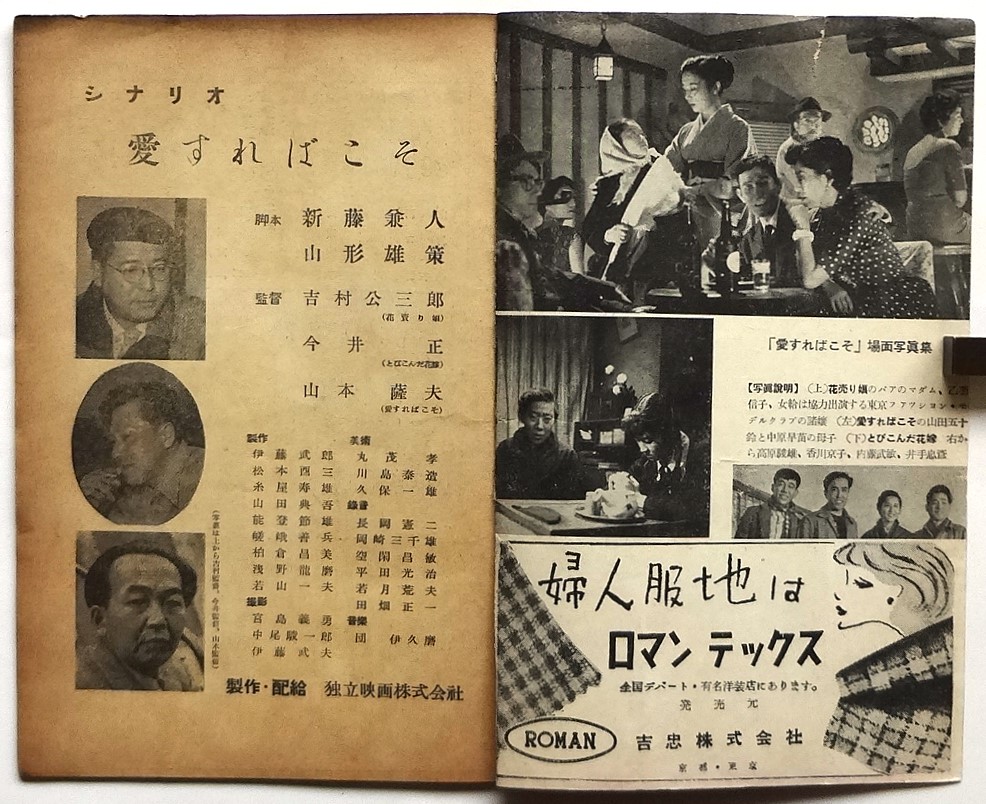 シナリオ
愛すればこそ
脚本 新藤兼人
山形雄策
監督 吉村公三郎
(花売り娘)
今井正
(とびこんだ花嫁)
山本薩夫
(愛すればこそ)
製作
伊藤武郎
松本酉三
糸屋寿雄
山田典吾
能登節雄
嵯峨善兵
柏倉昌美
浅野龍麿
若山一夫
撮影
宮島義勇
中尾駿一郎
伊藤武夫
美術
丸茂孝
川島泰造
久保一雄
録音
長岡憲二
岡崎三千雄
空閑昌敏
平田光治
若月荒夫
田畑正一
音楽
団伊久磨
(写真は上から吉村監督、今井監督、山本監督)
製作・配給 独立映画株式会社
「愛すればこそ」場面写眞集
【写眞説明】(上)花売り娘のバアのマダム、乙羽
信子、女給は協力出演する東京ファッション・モ
デルクラブの諸嬢 (左)愛すればこその山田五十
鈴と中原早苗の母子 (下)とびこんだ花嫁 右か
ら高原駿雄、香川京子、内藤武敏、井手忠彦
婦人服地は
ロマンテックス
全国デパート・有名洋装店にあります。
発売元
ROMAN 吉忠株式会社
京都・東京